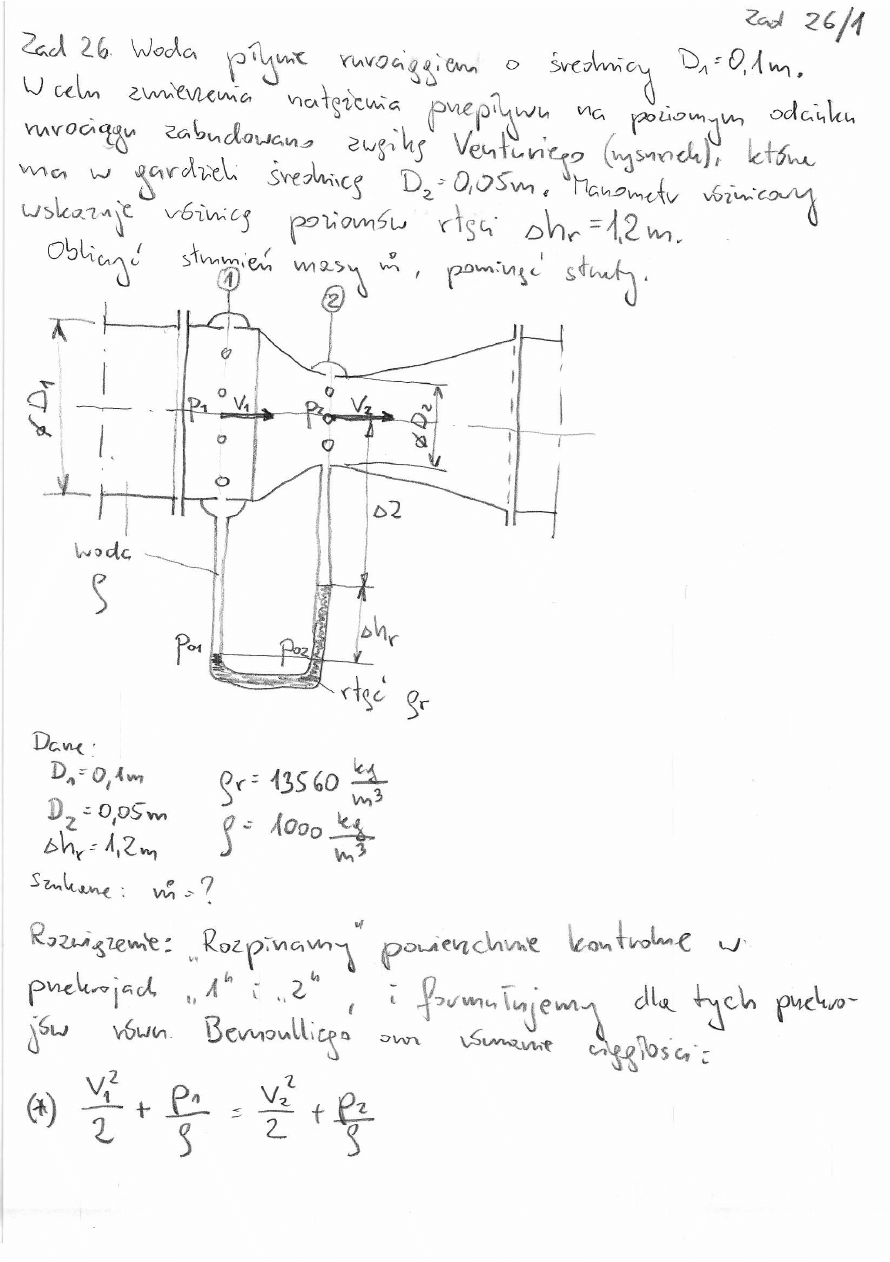 Zad 26/1
Zad 26. Woda płynie rurociągiem o średnicy D₁=0,1m.
W celu zmierzenia natężenia przepływu na poziomym odcinku
rurociągu zabudowano zwężkę Venturiego (rysunek), która
ma w gardzieli średnicę D₂=0,05m. Manometr różnicowy
wskazuje różnicę poziomów rtęci Δhr=1,2m.
Obliczyć strumień masy ṁ, pominąć straty.
① ②
ø D₁ p₁ V₁ p₂ V₂ ø D₂
ΔZ
woda
ρ
Δhr
p₀₁ p₀₂
rtęć ρr
Dane:
D₁=0,1m ρr = 13560 kg/m³
D₂=0,05m ρ = 1000 kg/m³
Δhr=1,2m
Szukane: ṁ=?
Rozwiązanie: „Rozpinamy" powierzchnie kontrolne w
przekrojach „1" i „2", i formułujemy dla tych przekro-
jów równ. Bernoulliego oraz równanie ciągłości:
(*) V₁²/2 + p₁/ρ = V₂²/2 + p₂/ρ